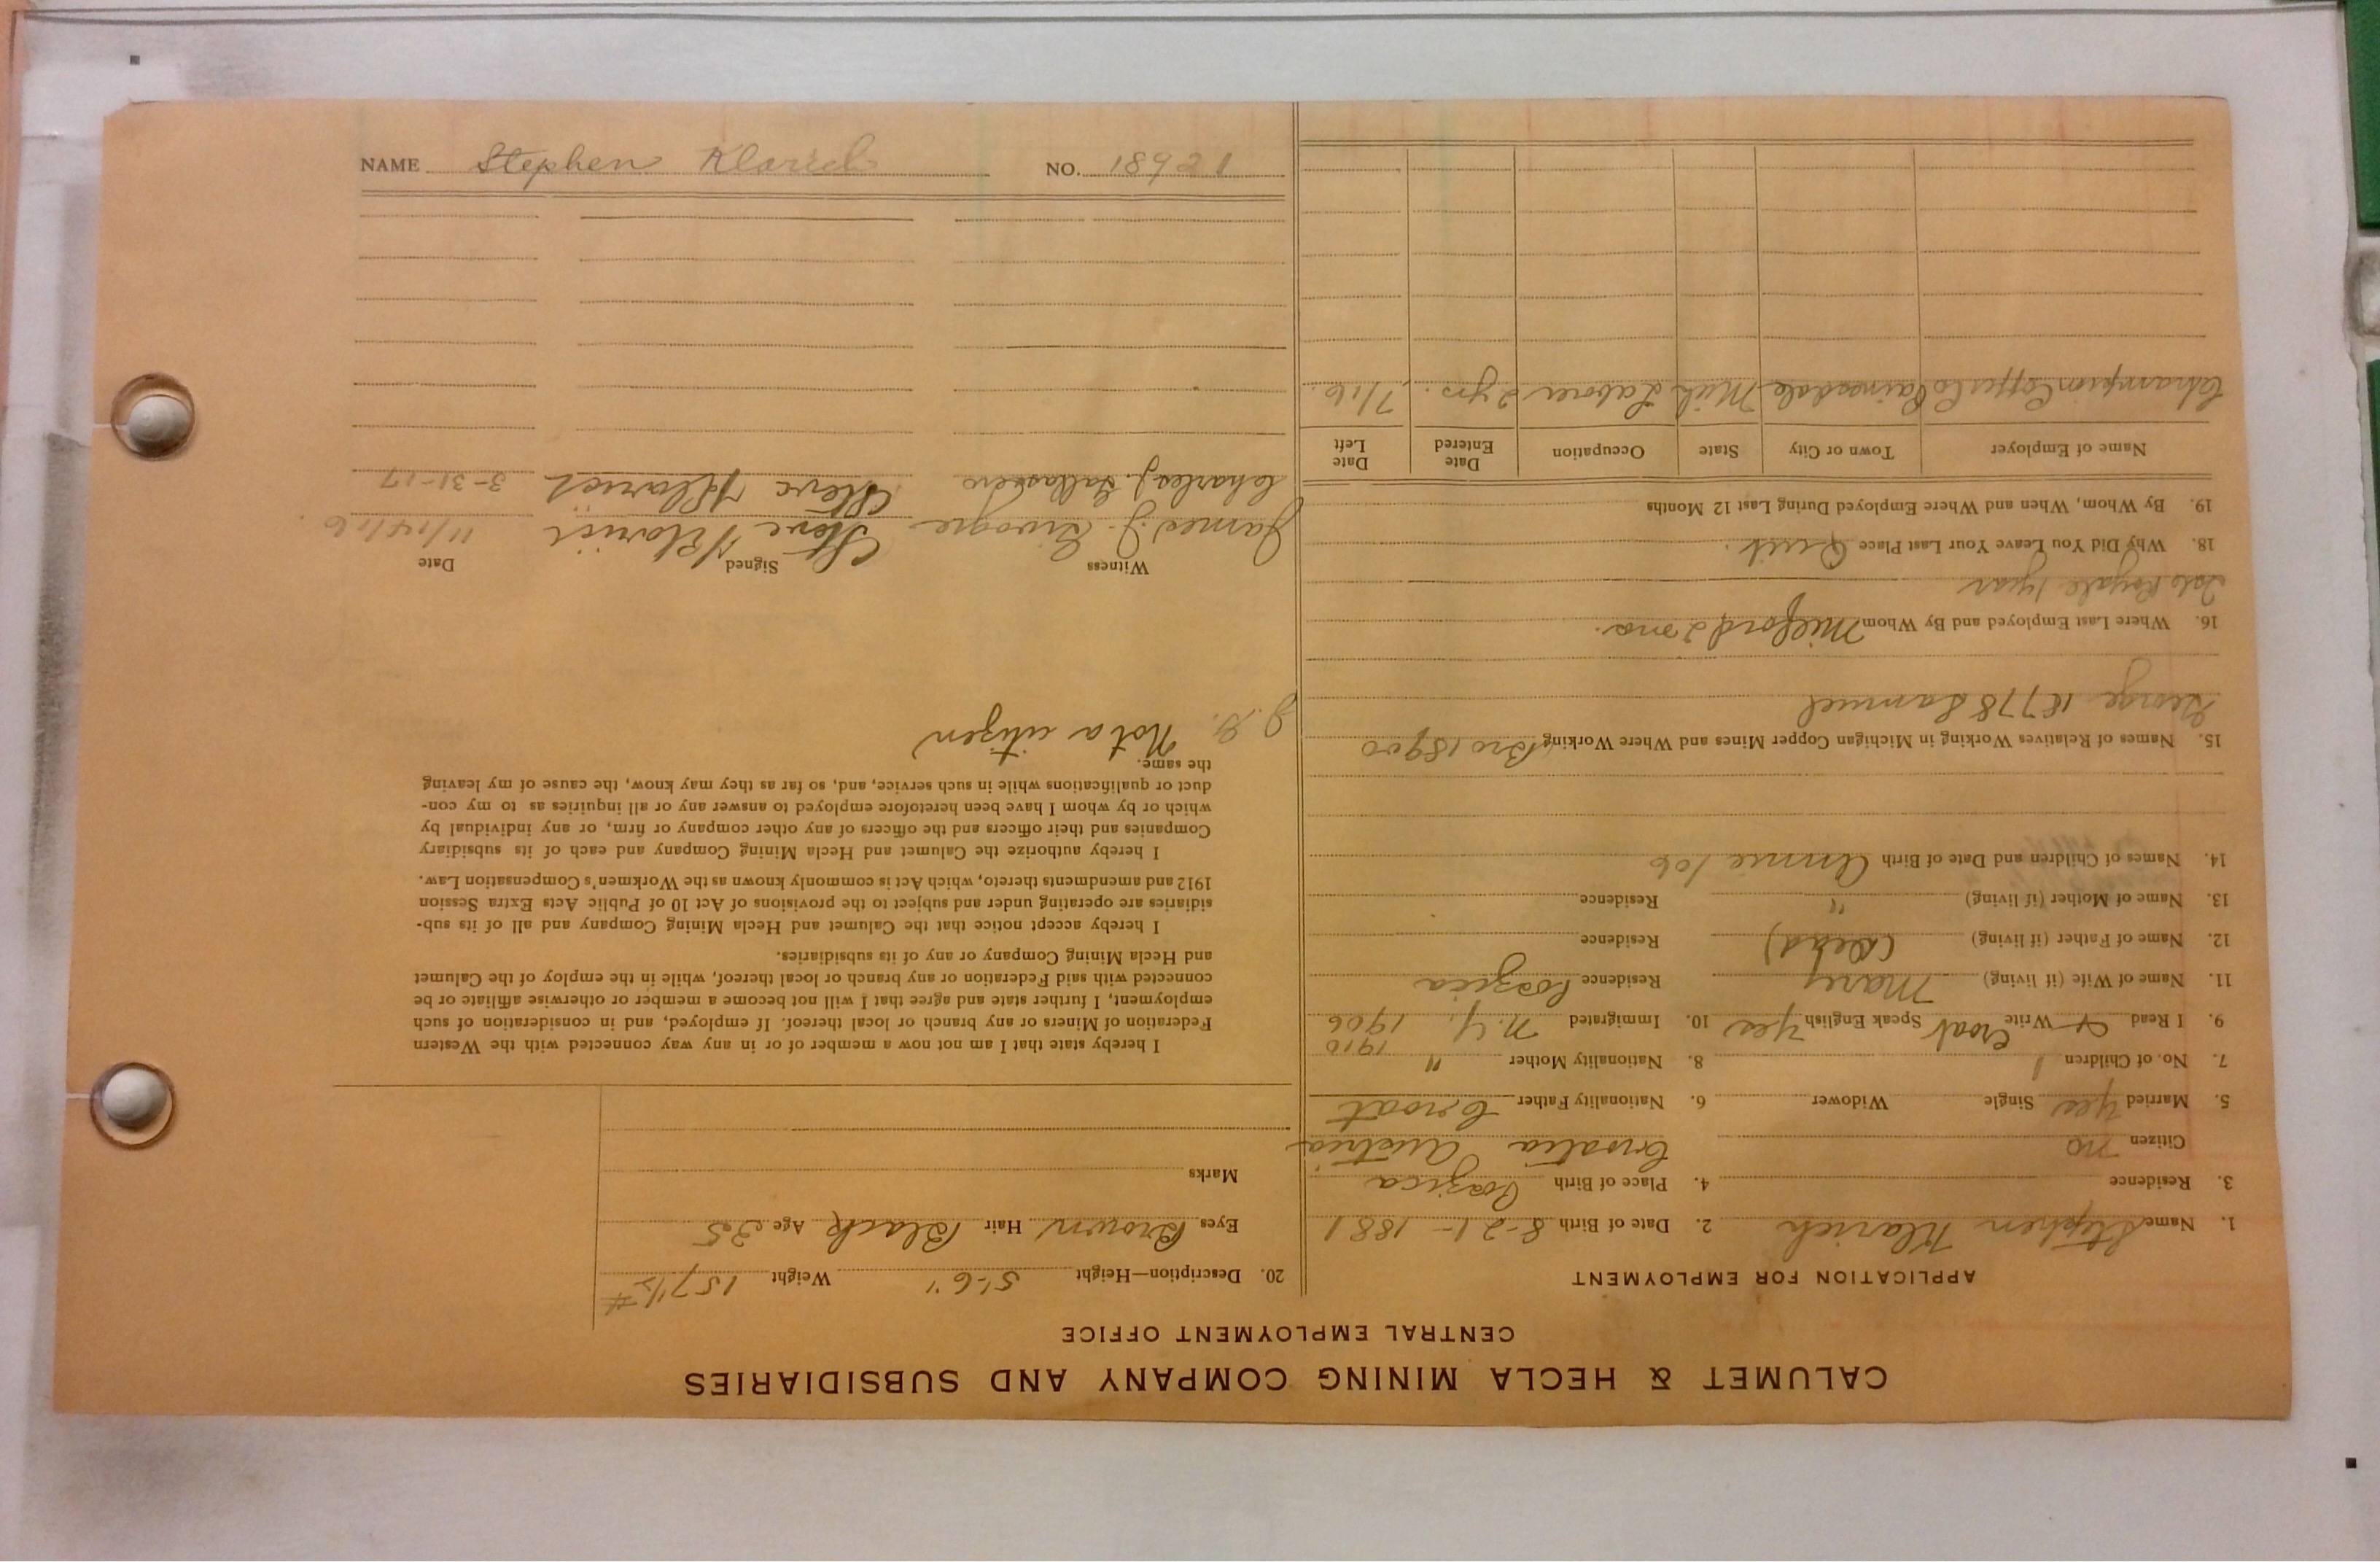 CALUMET & HECLA MINING COMPANY AND SUBSIDIARIES
CENTRAL EMPLOYMENT OFFICE
APPLICATION FOR EMPLOYMENT
1. Name Stephen Klarich 2. Date of Birth 8-21-1881
3. Residence 4. Place of Birth
Citizen no Croatia Austria
5. Married Yes Single Widower 6. Nationality Father Croat
7. No. of Children 1 8. Nationality Mother "
1910
9. I Read & Write Croat Speak English Yes 10. Immigrated N.Y. 1906
11. Name of Wife (if living) Mary Residence
12. Name of Father (if living) (Dead) Residence
13. Name of Mother (if living) " Residence
14. Names of Children and Date of Birth Annie 10
15. Names of Relatives Working in Michigan Copper Mines and Where Working Bro 18900
George 18778 Samuel
16. Where Last Employed and By Whom Milford 2 mo.
Isle Royale 1 year
18. Why Did You Leave Your Last Place Quit.
19. By Whom, When and Where Employed During Last 12 Months
Name of Employer Town or City State Occupation Date Entered Date Left
Champion Copper Co Painesdale Mich Laborer 2 yrs. 7/16.
20. Description—Height 5'-6" Weight 157 1/2 #
Eyes Brown Hair Black Age 35
Marks
I hereby state that I am not now a member of or in any way connected with the Western
Federation of Miners or any branch or local thereof. If employed, and in consideration of such
employment, I further state and agree that I will not become a member or otherwise affiliate or be
connected with said Federation or any branch or local thereof, while in the employ of the Calumet
and Hecla Mining Company or any of its subsidiaries.
I hereby accept notice that the Calumet and Hecla Mining Company and all of its sub-
sidiaries are operating under and subject to the provisions of Act 10 of Public Acts Extra Session
1912 and amendments thereto, which Act is commonly known as the Workmen's Compensation Law.
I hereby authorize the Calumet and Hecla Mining Company and each of its subsidiary
Companies and their officers and the officers of any other company or firm, or any individual by
which or by whom I have been heretofore employed to answer any or all inquiries as to my con-
duct or qualifications while in such service, and, so far as they may know, the cause of my leaving
the same.
Not a citizen
Witness Signed Date
James J. Steve Klarich 11/14/16
Charles J. Steve Klarich 3-31-17
NAME Stephen Klarich NO. 18921